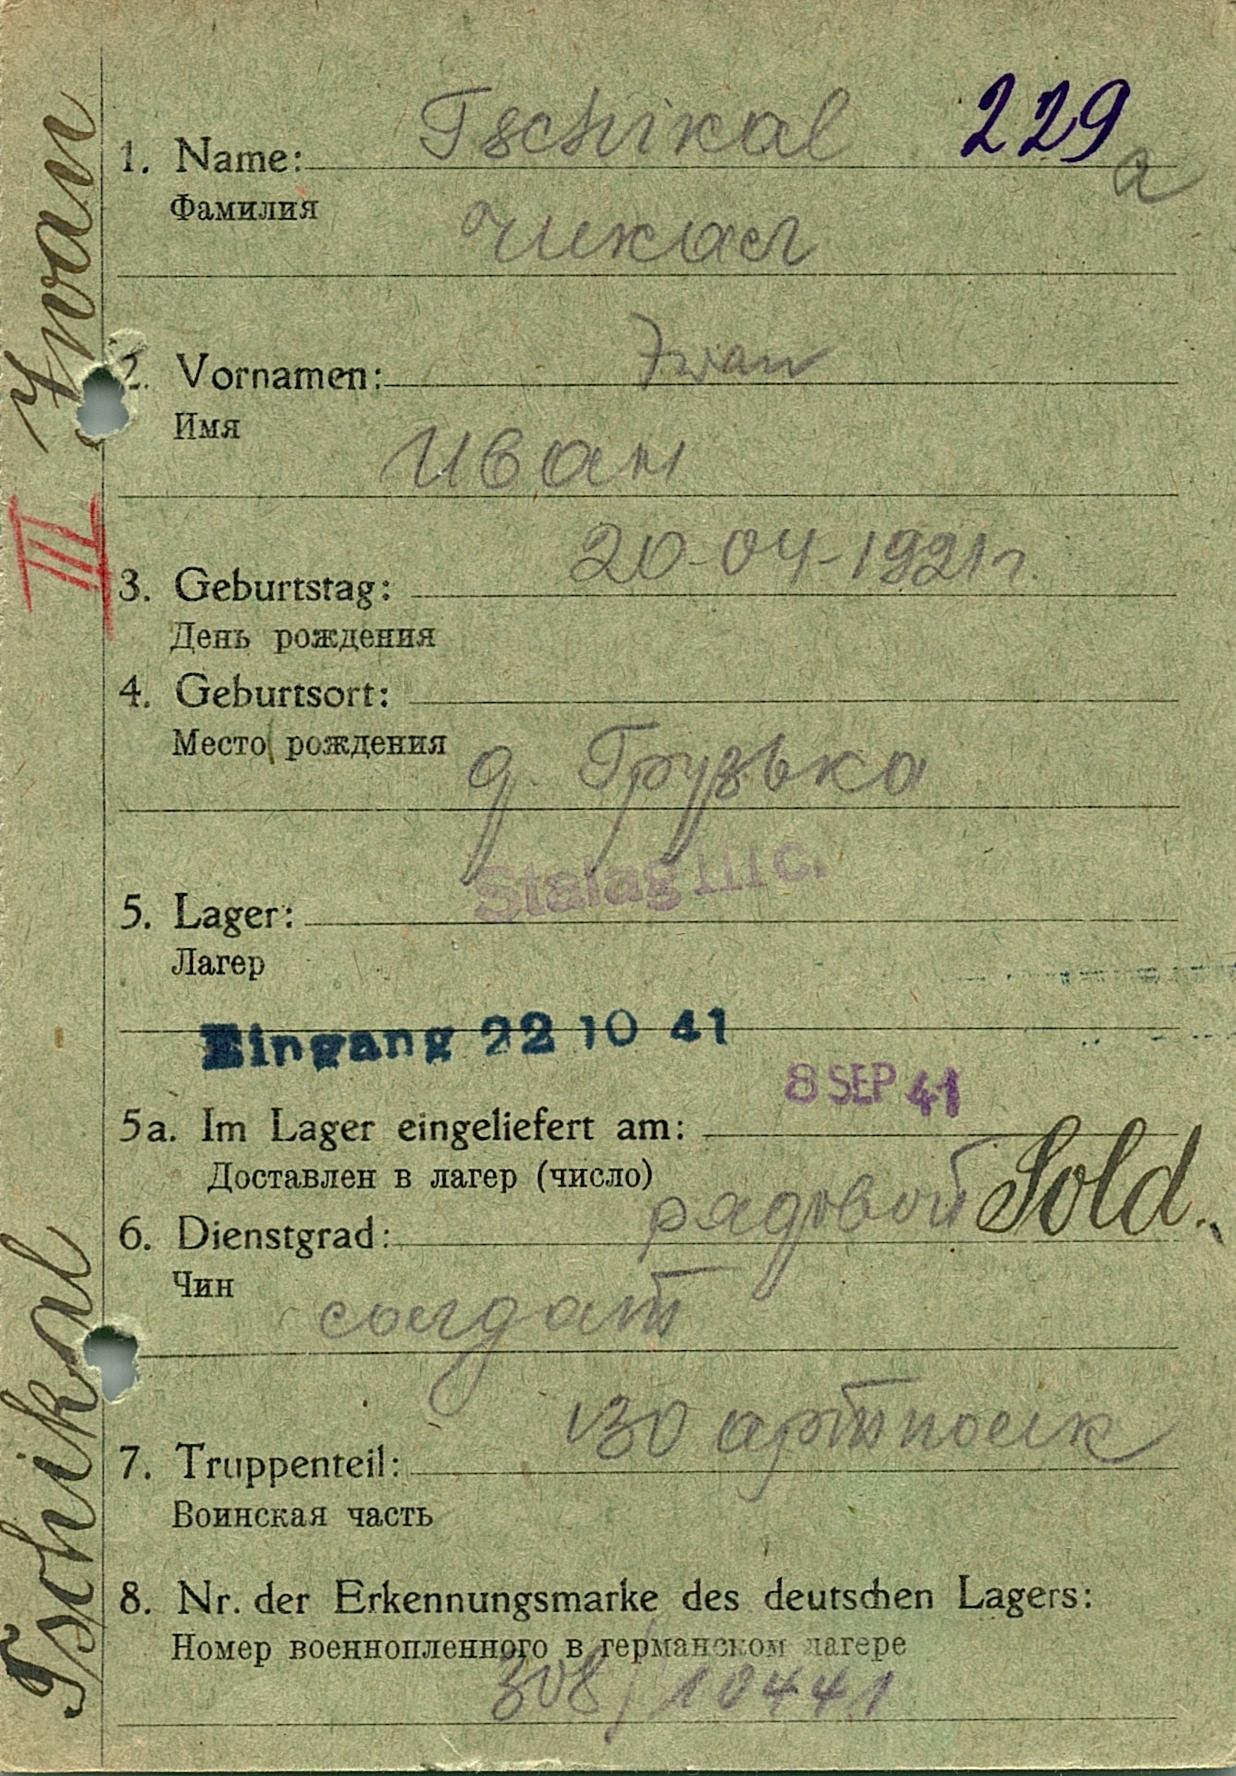 Tschikal 229
1. Name:
a
Фамилия
Чикал
Iwan
2. Vornamen:
Имя
Иван
III
20-04-1921 г.
3. Geburtstag:
День рождения
4. Geburtsort:
Место рождения
д. Грузька
Stalag III C.
5. Lager:
Лагер
Eingang 22 10 41
8 SEP 41
5a. Im Lager eingeliefert am:
Доставлен в лагер (число)
рядовой Sold.
6. Dienstgrad:
Чин
солдат
130 артполк
7. Truppenteil:
Воинская часть
8. Nr. der Erkennungsmarke des deutschen Lagers:
Номер военнопленного в германском лагере
308/10441
Tschikal Iwan